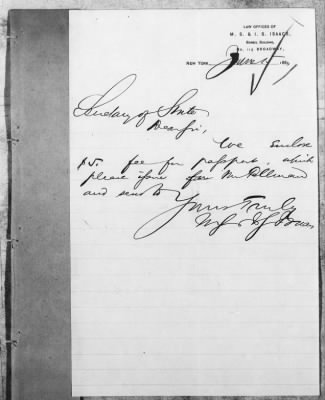 LAW OFFICES OF
M. S. & I. S. ISAACS,
BOREEL BUILDING,
No. 115 BROADWAY,
NEW YORK, June 188
Secretary of State
Dear Sir,
We enclose
$5 fee for passport, which
please issue for Mr
and send to
Yours Truly
M S & I S Isaacs